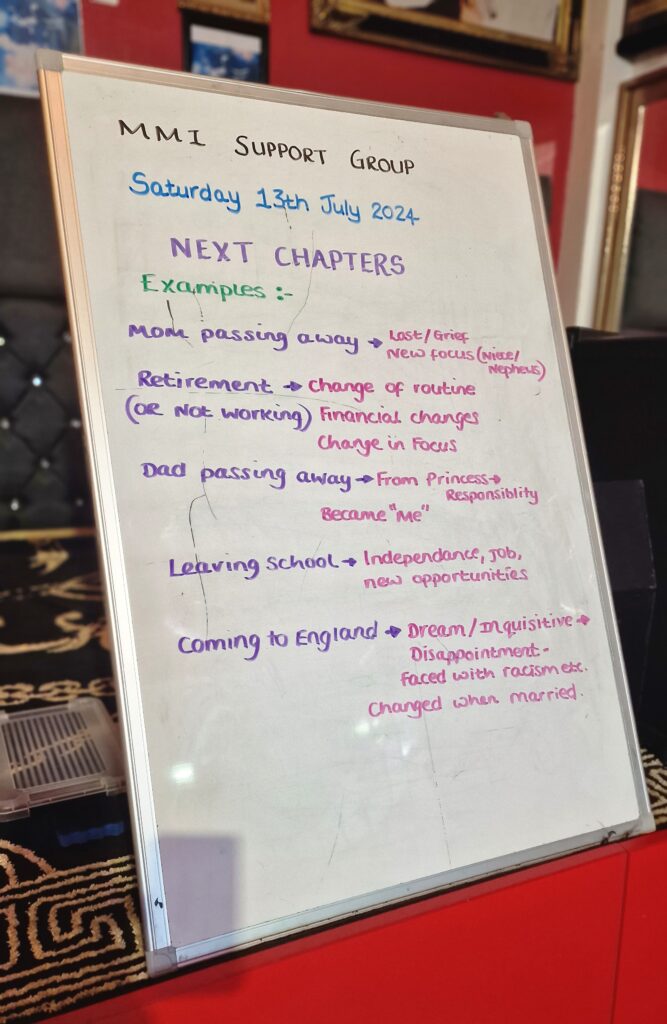 MMI SUPPORT GROUP
Saturday 13th July 2024
NEXT CHAPTERS
Examples :-
Mom passing away → Lost/Grief
New focus (Niece/
Nephews)
Retirement → Change of routine
(OR Not working) Financial changes
Change in Focus
Dad passing away → From Princess →
Responsiblity
Became "Me"
Leaving School → Independance, job,
new opportunities
Coming to England → Dream/Inquisitive →
Disappointment -
Faced with racism etc.
Changed when married.